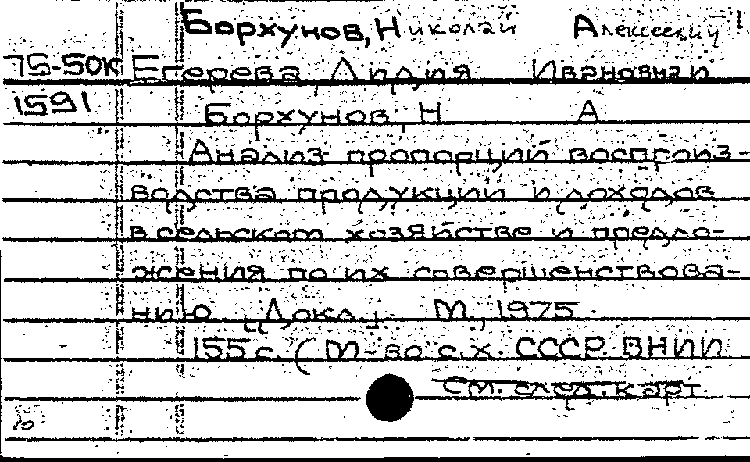 Борхунов, Николай Алексеевич
75-50к Егерева, Лидия Ивановна и
1591 Борхунов, Н А
Анализ пропорций воспроиз-
водства продукции и доходов
в сельском хозяйстве и предло-
жения по их совершенствова-
нию. [Докл.] М., 1975.
155 с. (М-во с.х. СССР. ВНИИ
См. след. карт